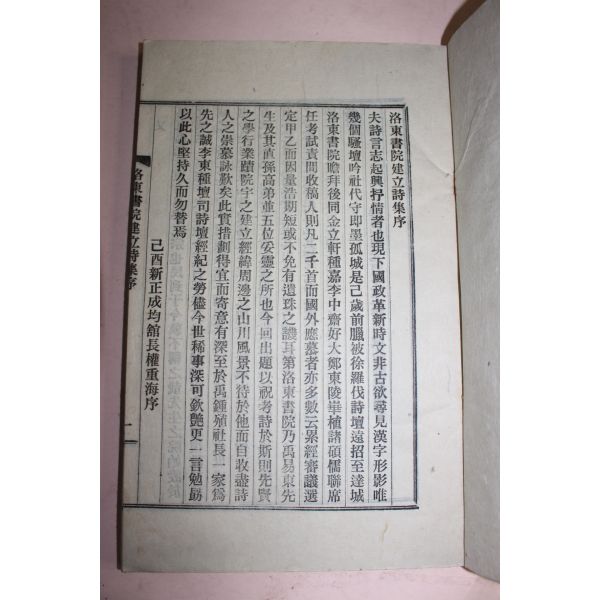 洛東書院建立詩集序
夫詩言志起興抒情者也現下國政革新時文非古欲尋見漢字形影唯
幾個騷壇吟社代守即墨孤城是己歲前臘被徐羅伐詩壇遠招至達城
洛東書院瞻拜後同金立軒種嘉李中齋好大鄭東陵畢植諸碩儒聯席
任考試責間收稿人則凡二千首而國外應慕者亦多數云累經審議選
定甲乙而因量浩期短或不免有遺珠之譏耳第洛東書院乃禹易東先
生及其直孫高弟並五位妥靈之所也今回出題以祝考詩於斯則先賢
之學行業蹟院宇之建立經緯周邊之山川風景不待於他而自收盡詩
人之崇慕詠歎矣此實措劃得宜而寄意有深至於禹鍾殖社長一家爲
先之誠李東種壇司詩壇經紀之勞儘今世稀事深可欽艷更一言勉勗
以此心堅持久而勿替焉
己酉新正成均館長權重海序
洛東書院建立詩集序